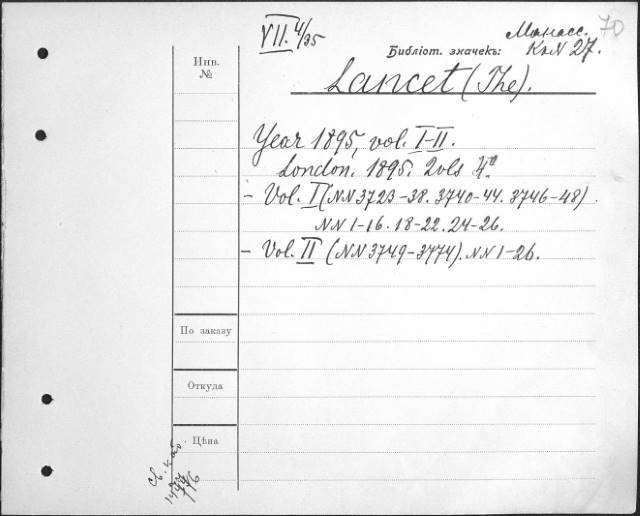 VII. 4/95
Манасс. 70
Библіот. значекъ: К. N 27.
Инв. №
Lancet (The).
Year 1895, vol. I-II.
London. 1895. 2vols 4°
- Vol. I (NN 3723-38. 3740-44. 3746-48).
NN 1-16. 18-22. 24-26.
- Vol. II (NN 3749-3774). NN 1-26.
По заказу
Откуда
Цѣна